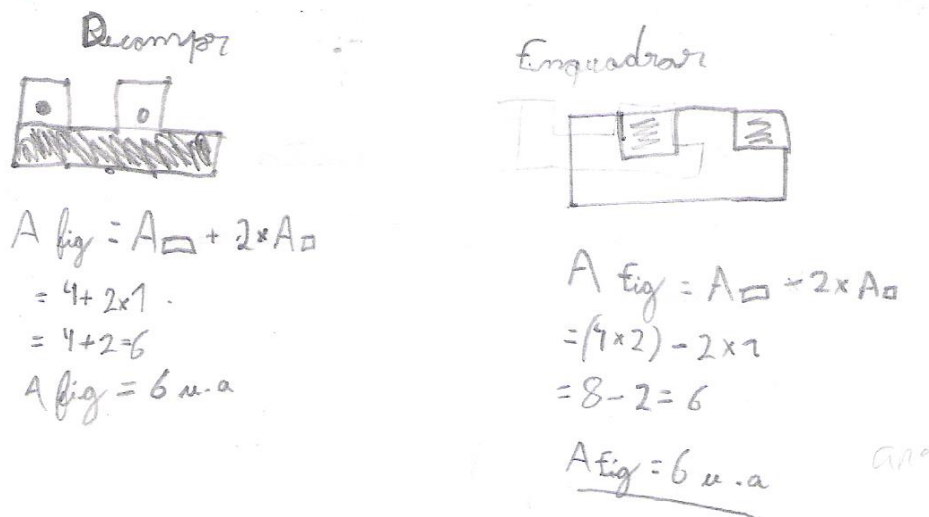 Decompor
A fig = A▭ + 2×A□
= 4+ 2×1
= 4+2=6
A fig = 6 u.a
Enquadrar
A fig = A▭ - 2×A□
=(4×2) - 2×1
=8-2=6
A fig = 6 u.a